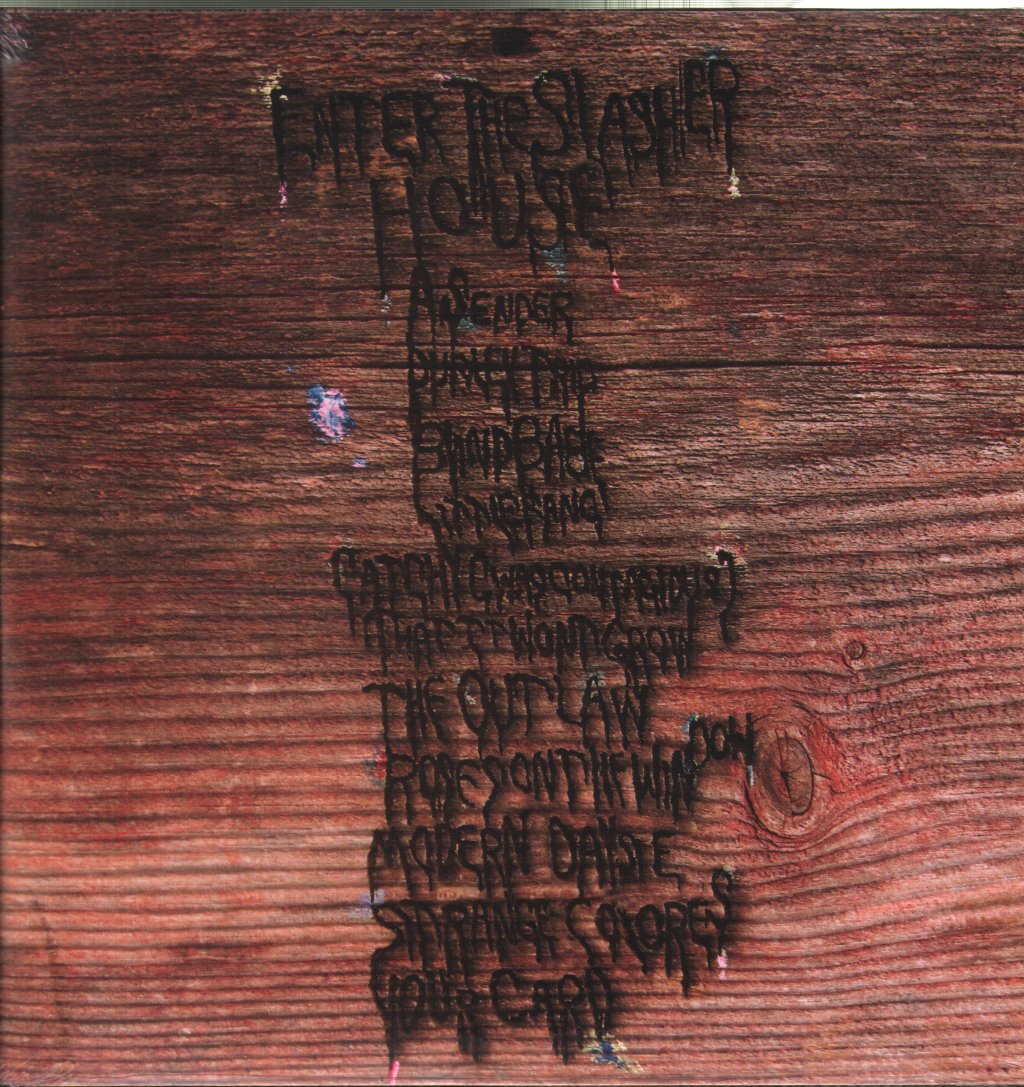 ENTER THE SLASHER
HOUSE
A SENDER
DUPLEX TRIP
BLIND BABE
LITTLE FANG
CATCHY (WAS CONTAGIOUS)
THAT IT WON'T GROW
THE OUTLAW
ROSES ON THE WINDOW
MODERN DAYS E
STRANGE COLORES
YOUR CARD